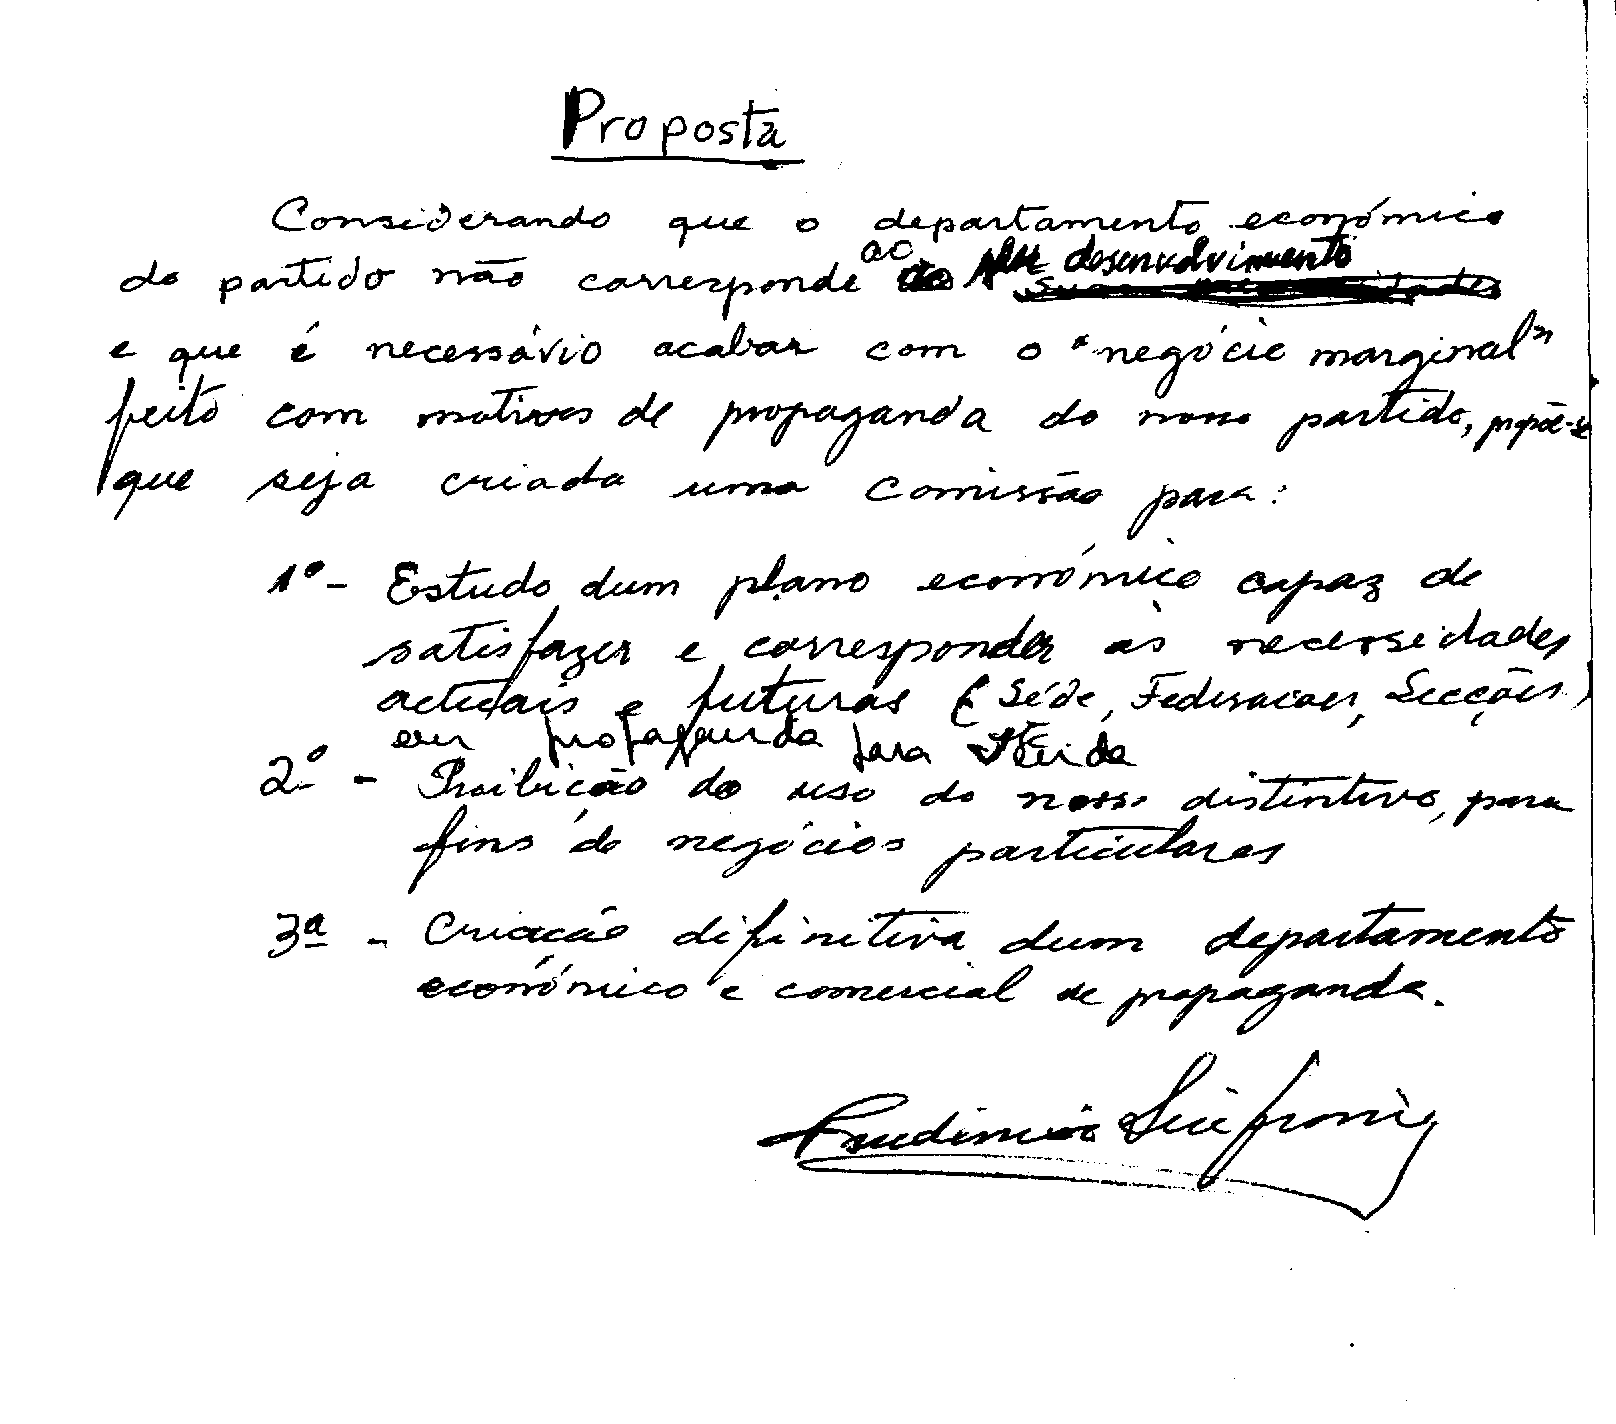 Proposta
Considerando que o departamento económico
do partido não corresponde ao seu desenvolvimento
e que é necessário acabar com o "negócio marginal"
feito com motivos de propaganda do nosso partido, propõe-se
que seja criada uma comissão para:
1º - Estudo dum plano económico capaz de
satisfazer e corresponder às necessidades
actuais e futuras (Séde, Federacoes, Secções)
em propaganda para
2º - Proibição do uso do nosso distintivo, para
fins de negócios particulares
3ª - Criação difinitiva dum departamento
económico e comercial de propaganda.